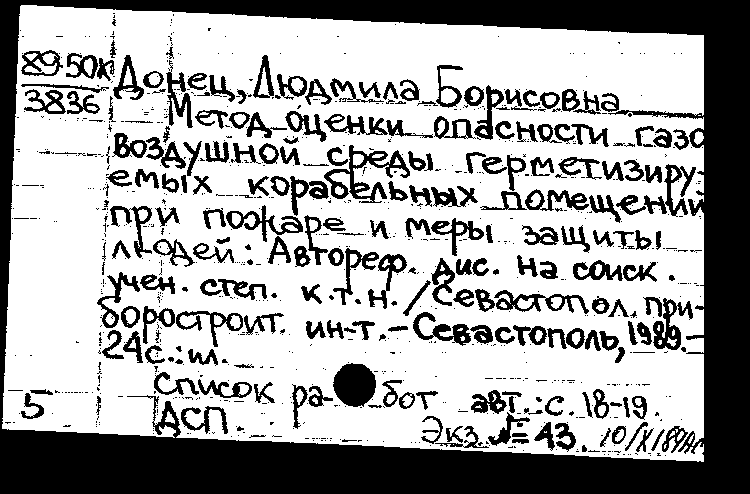 89-50К
3836
Донец, Людмила Борисовна
Метод оценки опасности газо
воздушной среды герметизиру-
емых корабельных помещений
при пожаре и меры защиты
людей: Автореф. дис. на соиск.
учен. степ. к.т.н. / Севастопол. при-
боростроит. ин-т. – Севастополь, 1989. –
24с.: ил.
Список работ авт.: с. 18-19.
5
ДСП.
Экз. № 43.